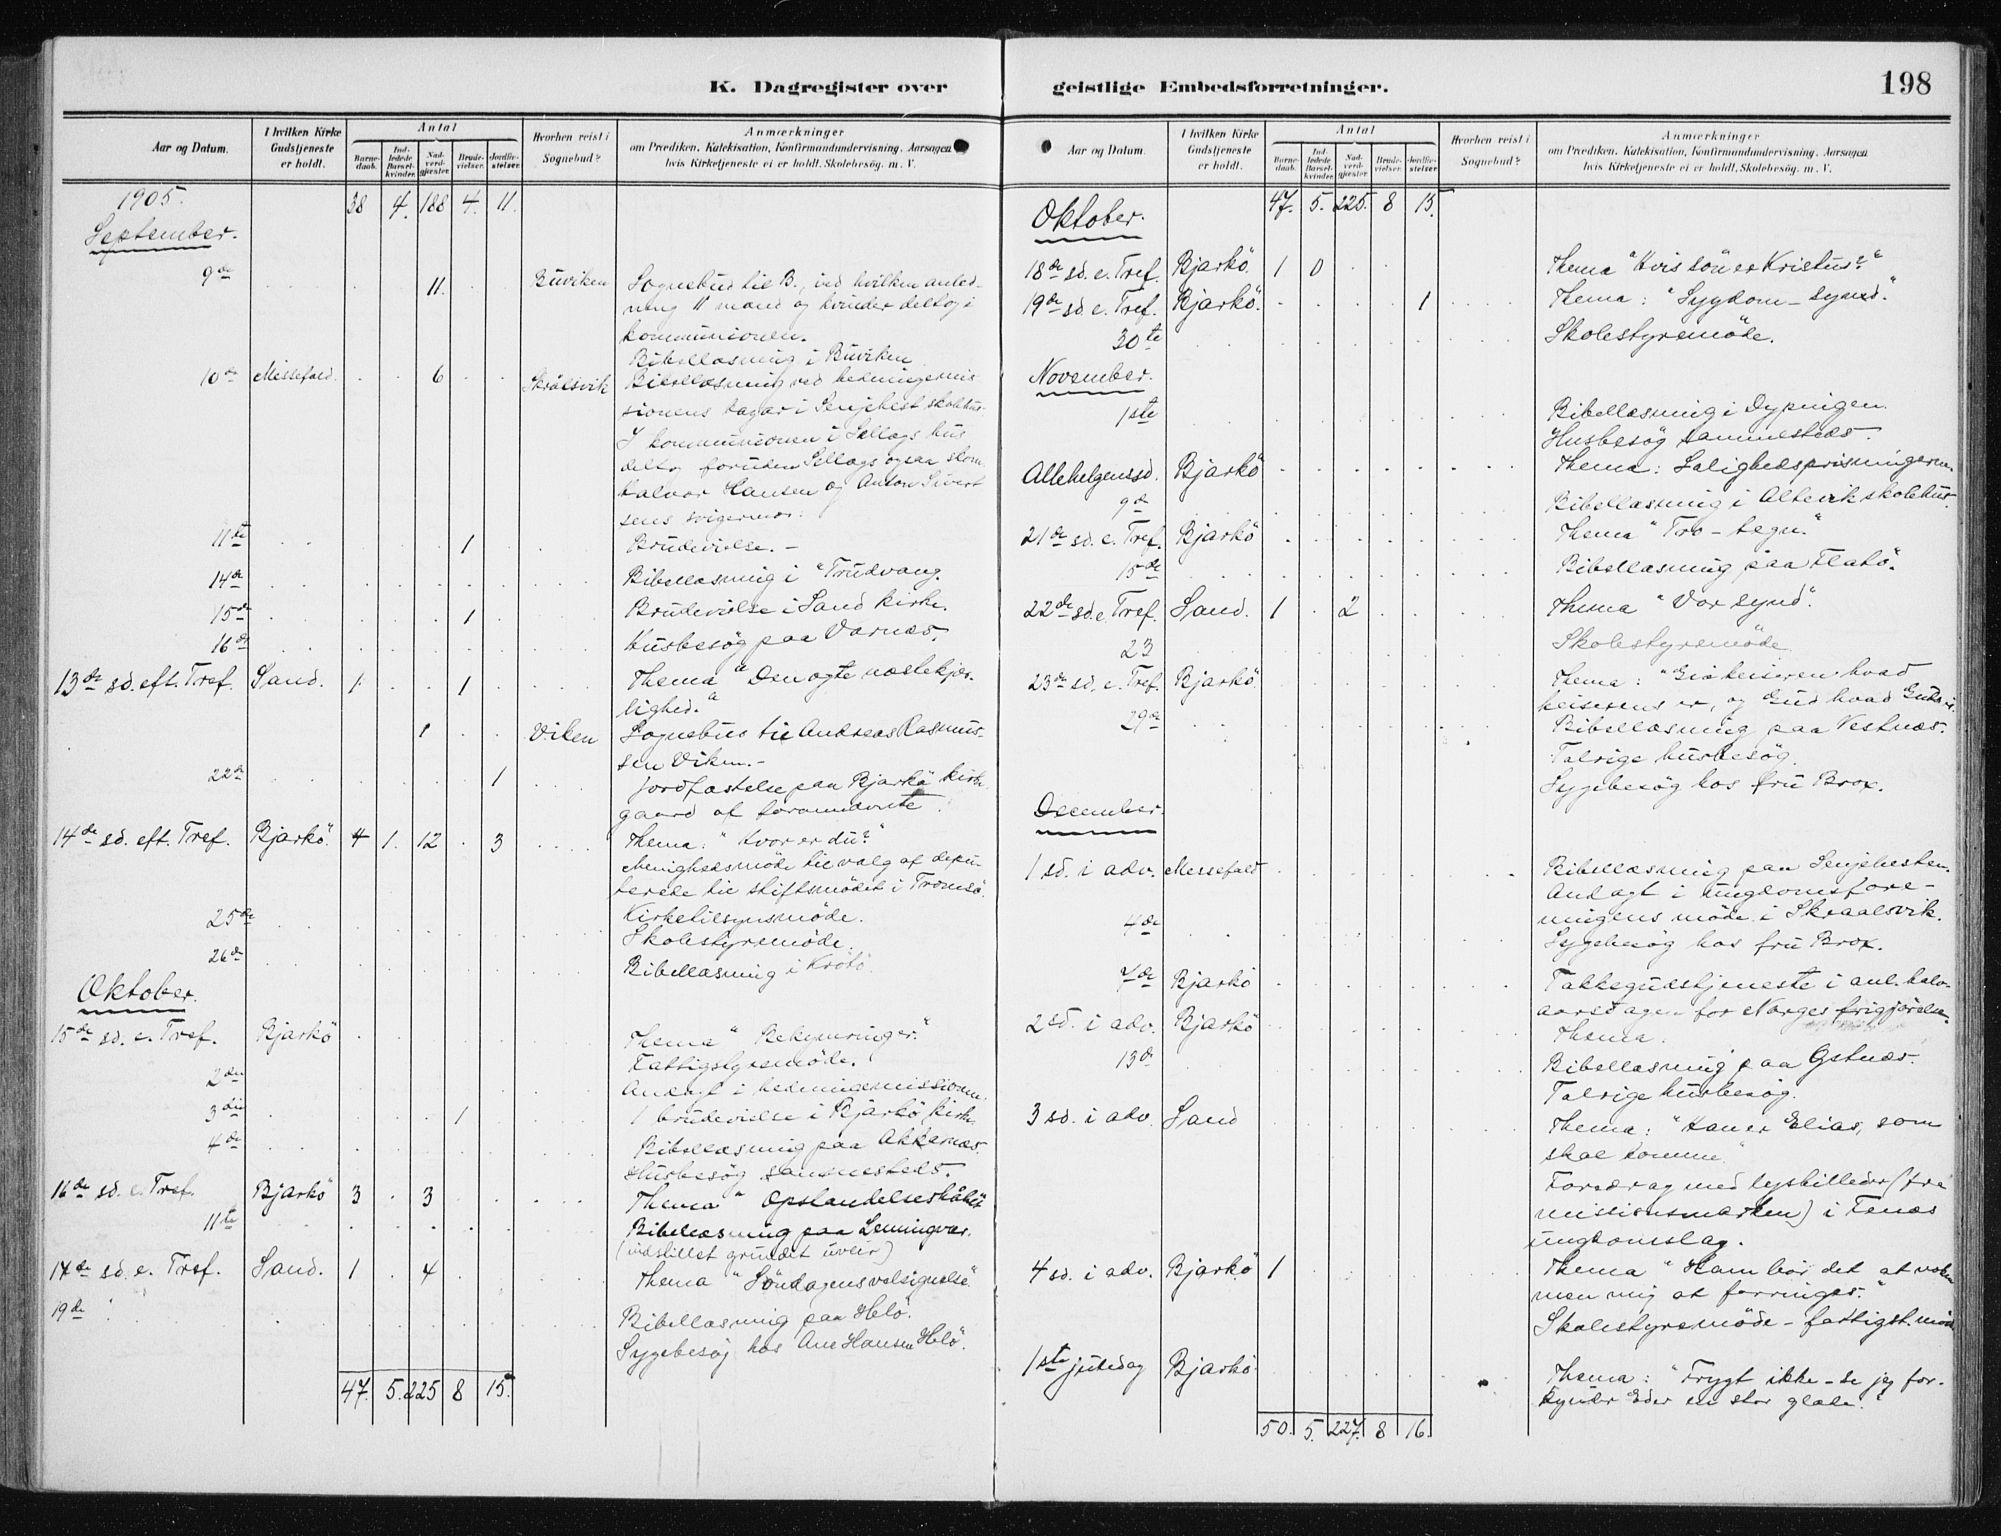 K. Dagregister over
Aar og Datum.
I hvilken Kirke Gudstjeneste er holdt.
Antal
Barne-daab.
Ind-ledede Barsel-kvinder.
Nad-verd-gjæster.
Brude-vielser.
Jordfæ-stelser.
Hvorhen reist i Sognebud?
Anmærkninger
om Prædiken, Katekisation, Konfirmandundervisning, Aarsagen
hvis Kirketjeneste ei er holdt, Skolebesøg, m. V.
1905. 38 4. 188 4. 11.
September.
9de 11. Buviken Sognebud til B., ved hvilken anled-
ning 11 mænd og kvinder deltog i
kommunionen.
Bibellæsning i Buviken
10de Messefald. 6 Skrålsvik Bibellæsning ved hedningemis-
sionens dagar i Senjehest skolehus.
I kommunionen i Sellags hus
deltog foruden Sellags ogsaa skom.
Halvor Hansen og Anton Sivert
sens svigermor.
11te 1 Brudevielse. –
14de Bibellæsning i "Trudvang.
15de 1 Brudevielse i Sand kirke.
16de Husbesøg paa Varnæs.
13de sd. eft. Tref. Sand. 1 1 Thema "Den ægte næstekjær-
lighed."
1 Viken Sognebud til Andreas Rasmus-
sen Viken. –
22de 1 Jordfæstelse paa Bjarkö kirke-
gaard af foranævnte.
14de sd. eft. Tref. Bjarkö. 4 1. 12 3 Thema: "Hvor er du?"
Menighedsmöde til valg af depu-
terede til stiftsmödet i Tromsö.
Kirketilsynsmöde.
25de Skolestyremöde.
26de Bibellæsning i Krötö
Oktober.
15de sd. e. Tref. Bjarkö Thema "Bekymringer."
Fattigstyremöde.
2den Andagt i hedningemissionen.
3die 1 1 brudevielse i Bjarkö kirke
4de Bibellæsning paa Akkarnæs.
Husbesøg sammesteds.
16de sd. e. Tref. Bjarkö 3 3 Thema "Opstandelseshåbet
11te Bibellæsning paa Lemingvær.
(indstillet grundet uveir)
17de sd. e. Tref. Sand. 1 4 Thema "Söndagens velsignelse"
19de Bibellæsning paa Helö.
Sygebesøg hos Ane Hansen Helö.
47. 5. 225 8 15.
geistlige Embedsforretninger.
198
Aar og Datum.
I hvilken Kirke Gudstjeneste er holdt.
Antal
Barne-daab.
Ind-ledede Barsel-kvinder.
Nad-verd-gjæster.
Brude-vielser.
Jordfæ-stelser.
Hvorhen reist i Sognebud?
Anmærkninger
om Prædiken, Katekisation, Konfirmandundervisning, Aarsagen
hvis Kirketjeneste ei er holdt, Skolebesøg, m. V.
Oktober. 47. 5. 225. 8 15.
18de sd. e. Tref. Bjarkö. 1 0 Thema "Hvis sön er Kristus?"
19de sd. e. Tref. Bjarkö. 1 Thema: "Sygdom – synd."
30te Skolestyremöde.
November.
1ste Bibellæsning i Dypingen.
Husbesøg sammesteds.
Allehelgenssd. Bjarkö Thema: Salighedsprisningerne.
9de Bibellæsning i Altevik skolehus.
21de sd. e. Tref. Bjarkö Thema "Tro – tegn."
15de Bibellæsning paa Flatö.
22de sd. e. Tref. Sand. 1 2 Thema "Vor synd".
23 Skolestyremöde
23de sd. e. Tref. Bjarkö Thema: "Giv keiseren hvad
keiserens er, og Gud hvad Guds er.
29de Bibellæsning paa Vestnæs.
Talrige husbesøg.
Sygebesøg hos fru Brox.
December.
1 sd. i adv. Messefald Bibellæsning paa Senjehesten.
Andagt i ungdomsfore-
ningens møde i Skraalsvik.
4de Sygebesøg hos fru Brox.
7de Bjarkö Takkegudstjeneste i anl. halv-
aarsdagen for Norges frigjörelse.
2 sd. i adv. Bjarkö Thema.
13de Bibellæsning paa Gstnæs.
Talrige husbesøg.
3 sd. i adv. Sand Thema: "Han er Elias, som
skal komme"
Foredrag med lysbilleder (fra
missionsmarken) i Fenæs
ungdomslag.
4 sd. i adv. Bjarkö 1 Thema "Ham bör det at vokse
men mig at forringes."
Skolestyremöde – fattigst. möde
1ste juledag Bjarkö Thema: "Frygt ikke – se jeg for-
kynder Eder en stor glæde."
50. 5. 227. 8 16.